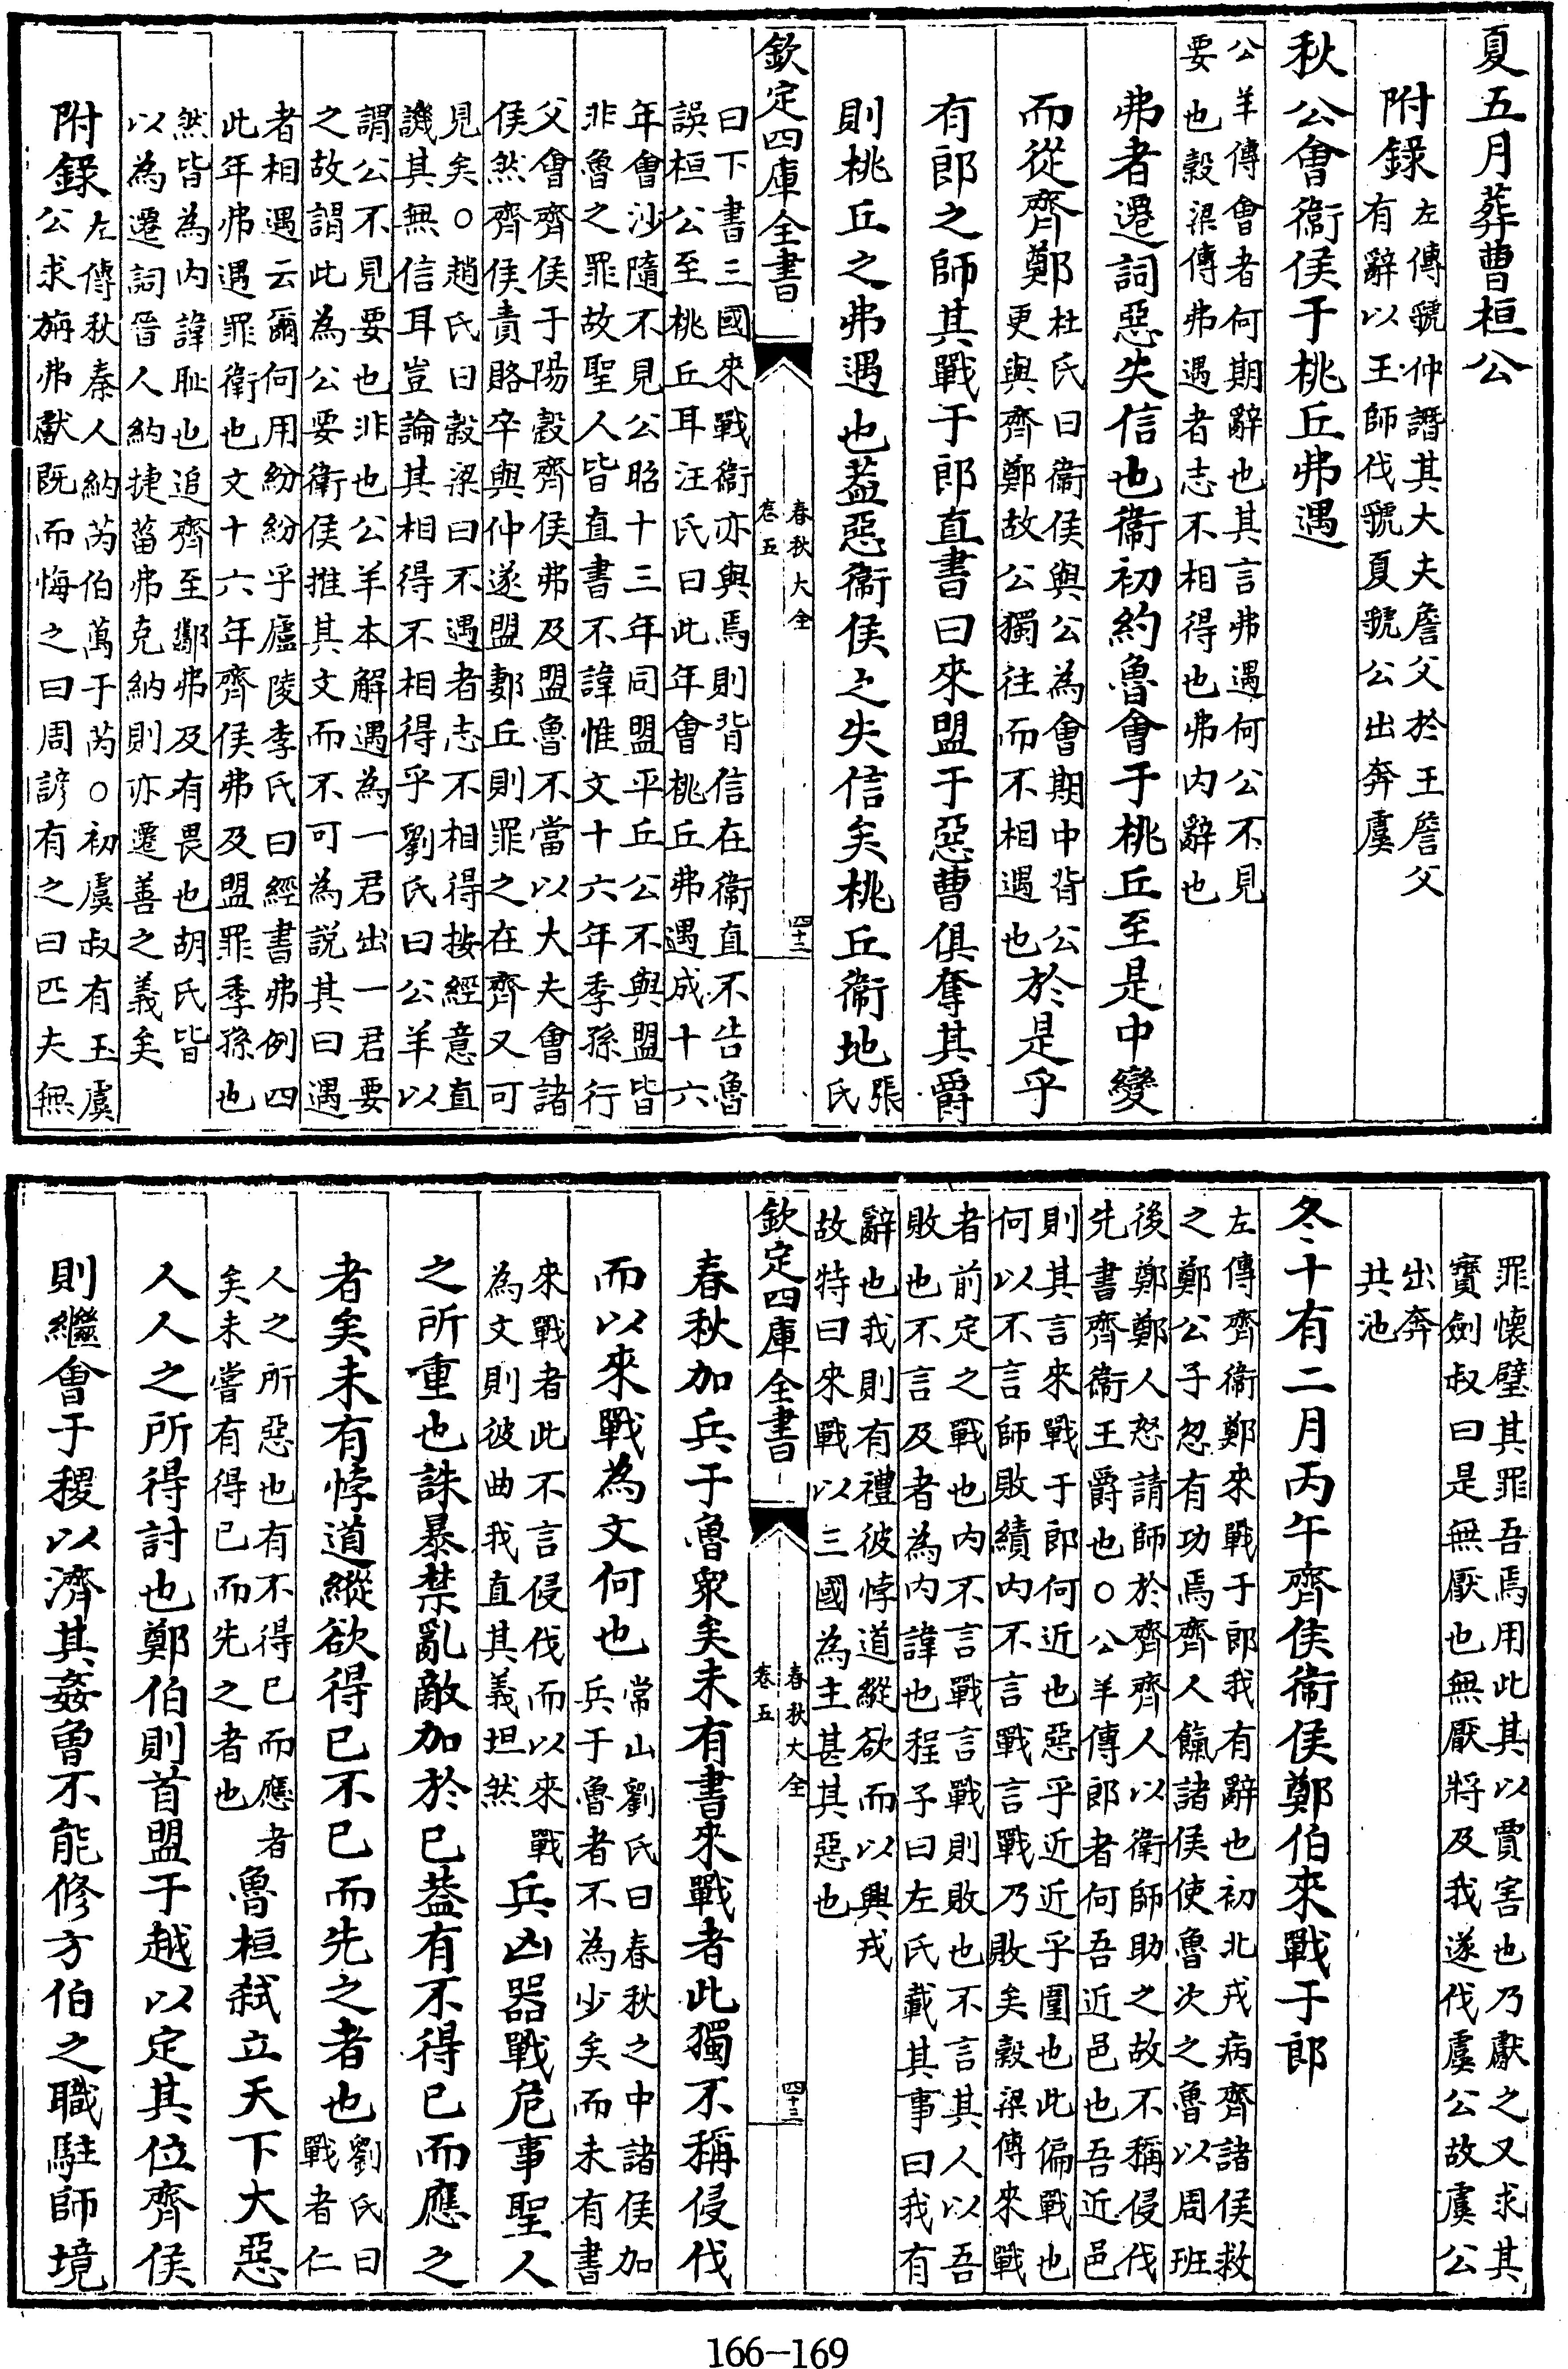 夏五月葬曹桓公
附錄左傳虢仲譖其大夫詹父於王詹父
有辭以王師伐虢夏虢公出奔虞
秋公會衞侯于桃丘弗遇
公羊傳會者何期辭也其言弗遇何公不見
要也穀梁傳弗遇者志不相得也弗內辭也
弗者遷詞惡失信也衞初約魯會于桃丘至是中變
而從齊鄭杜氏曰衞侯與公為會期中背公
更與齊鄭故公獨往而不相遇也於是乎
有郎之師其戰于郎直書曰來盟于惡曹俱奪其爵
則桃丘之弗遇也葢惡衞侯之失信矣桃丘衞地張
氏
欽定四庫全書
春秋大全
卷五
四十二
曰下書三國來戰衞亦與焉則背信在衞直不告魯
誤桓公至桃丘耳汪氏曰此年會桃丘弗遇成十六
年會沙隨不見公昭十三年同盟平丘公不與盟皆
非魯之罪故聖人皆直書不諱惟文十六年季孫行
父會齊侯于陽穀齊侯弗及盟魯不當以大夫會諸
侯然齊侯責賂卒與仲遂盟郪丘則罪之在齊又可
見矣○趙氏曰穀梁曰不遇者志不相得按經意直
譏其無信耳豈論其相得不相得乎劉氏曰公羊以
謂公不見要也非也公羊本解遇為一君出一君要
之故謂此為公要衞侯推其文而不可為説其曰遇
者相遇云爾何用紛紛乎廬陵李氏曰經書弗例四
此年弗遇罪衞也文十六年齊侯弗及盟罪季孫也
然皆為內諱恥也追齊至酅弗及有畏也胡氏皆
以為遷詞晉人納捷菑弗克納則亦遷善之義矣
附錄左傳秋秦人納芮伯萬于芮○初虞叔有玉虞
公求旃弗獻既而悔之曰周諺有之曰匹夫無
罪懷璧其罪吾焉用此其以賈害也乃獻之又求其
寶劍叔曰是無厭也無厭將及我遂伐虞公故虞公
出奔
共池
冬十有二月丙午齊侯衞侯鄭伯來戰于郎
左傳齊衞鄭來戰于郎我有辭也初北戎病齊諸侯救
之鄭公子忽有功焉齊人餼諸侯使魯次之魯以周班
後鄭鄭人怒請師於齊齊人以衞師助之故不稱侵伐
先書齊衞王爵也○公羊傳郎者何吾近邑也吾近邑
則其言來戰于郎何近也惡乎近近乎圍也此偏戰也
何以不言師敗績內不言戰言戰乃敗矣穀梁傳來戰
者前定之戰也內不言戰言戰則敗也不言其人以吾
敗也不言及者為內諱也程子曰左氏載其事曰我有
辭也我則有禮彼悖道縱欲而以興戎
故特曰來戰以三國為主甚其惡也
欽定四庫全書
春秋大全
卷五
四十三
春秋加兵于魯衆矣未有書來戰者此獨不稱侵伐
而以來戰為文何也常山劉氏曰春秋之中諸侯加
兵于魯者不為少矣而未有書
來戰者此不言侵伐而以來戰
為文則彼曲我直其義坦然兵凶器戰危事聖人
之所重也誅暴禁亂敵加於已葢有不得已而應之
者矣未有悖道縱欲得已不已而先之者也劉氏曰
戰者仁
人之所惡也有不得已而應者
矣未嘗有得已而先之者也魯桓弒立天下大惡
人人之所得討也鄭伯則首盟于越以定其位齊侯
則繼會于稷以濟其姦曾不能修方伯之職駐師境
166-169